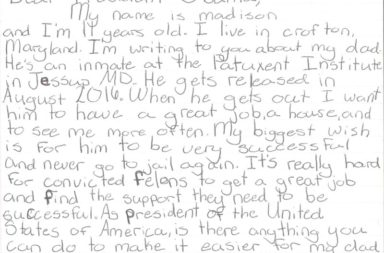 My name is madison
and I'm 14 years old. I live in crofton,
Maryland. I'm writing to you about my dad.
He's an inmate at the Patuxent Institute
in Jessup MD. He gets released in
August 2016. When he gets out I want
him to have a great job, a house, and
to see me more often. My biggest wish
is for him to be very successful
and never go to jail again. It's really hard
for convicted felons to get a great job
and find the support they need to be
successful. As president of the United
States of America, is there anything you
can do to make it easier for my dad